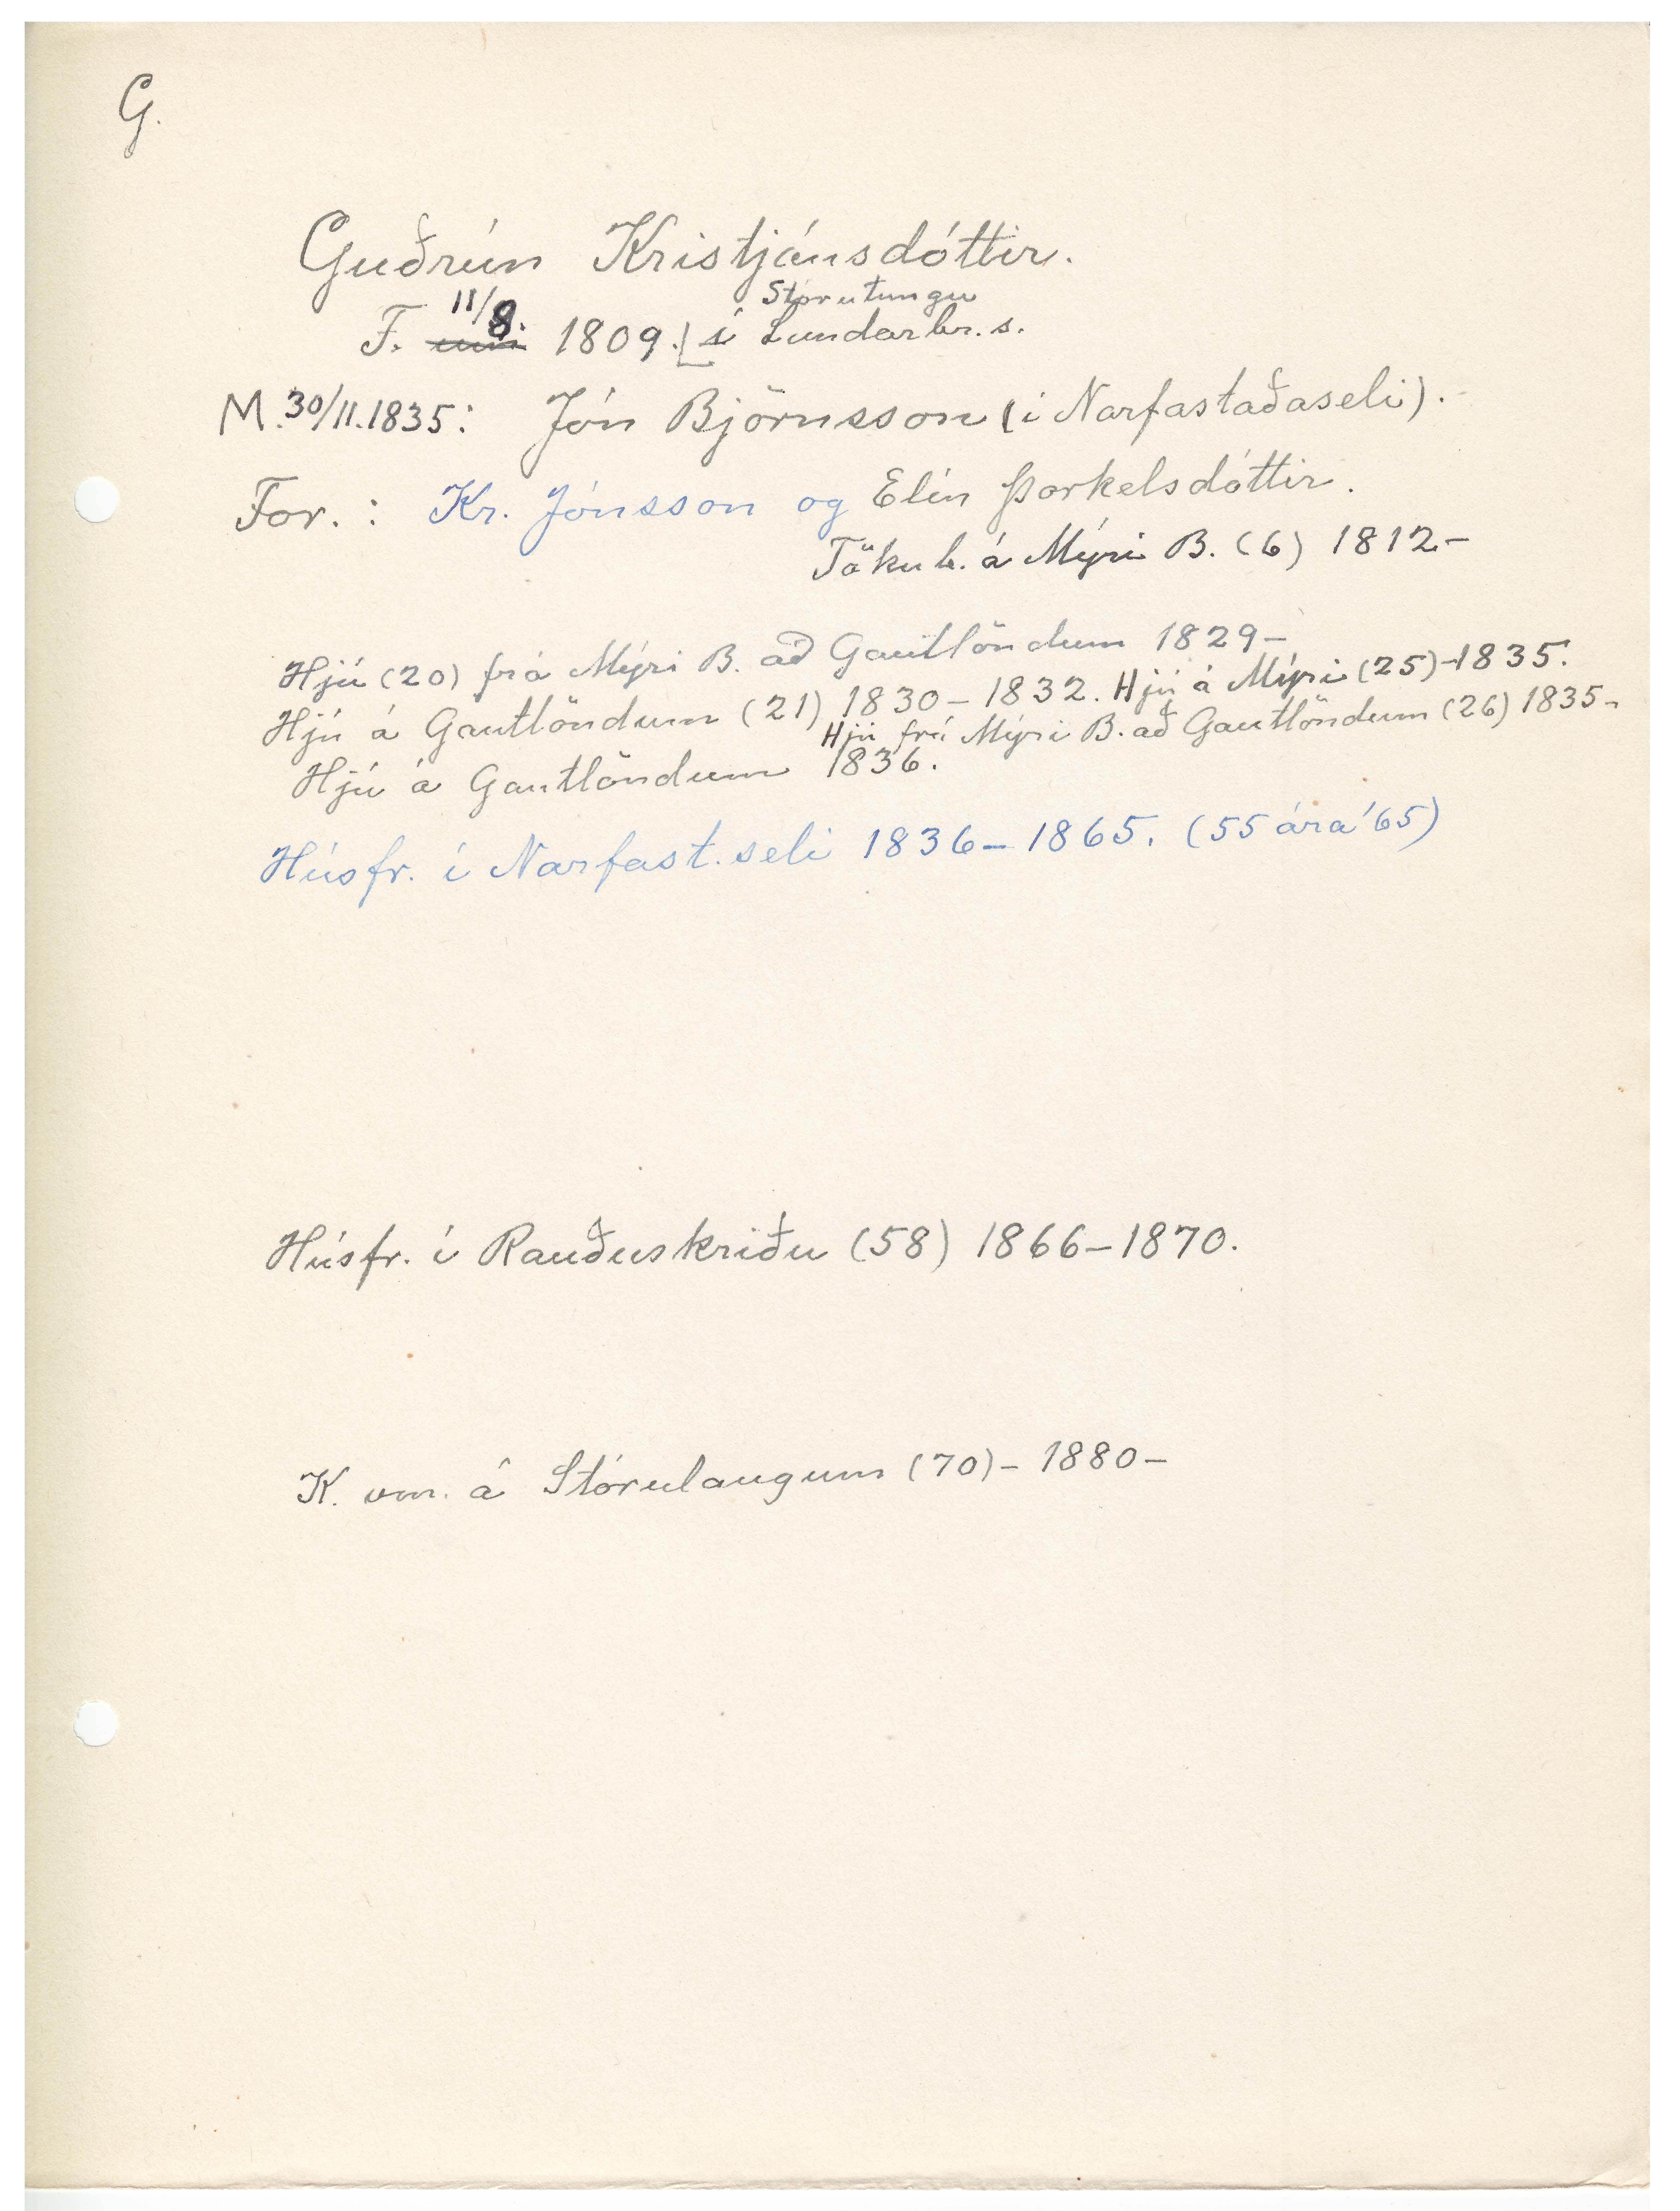 G.
Guðrún Kristjánsdóttir.
Stórutungu
F. 11/8. 1809. í Lundarbr. s.
M. 30/11.1835: Jón Björnsson (í Narfastaðaseli).
For. : Kr. Jónsson og Elín Þorkelsdóttir.
Tökub. á Mýri B. (6) 1812-
Hjú (20) frá Mýri B. að Gautlöndum 1829-
Hjú á Gautlöndum (21) 1830-1832. Hjú á Mýri (25)-1835.
Hjú frá Mýri B. að Gautlöndum (26) 1835-
Hjú á Gautlöndum 1836.
Húsfr. í Narfast.seli 1836-1865. (55 ára '65)
Húsfr. í Rauðuskriðu (58) 1866-1870.
K. vm. á Stórulaugum (70)- 1880-